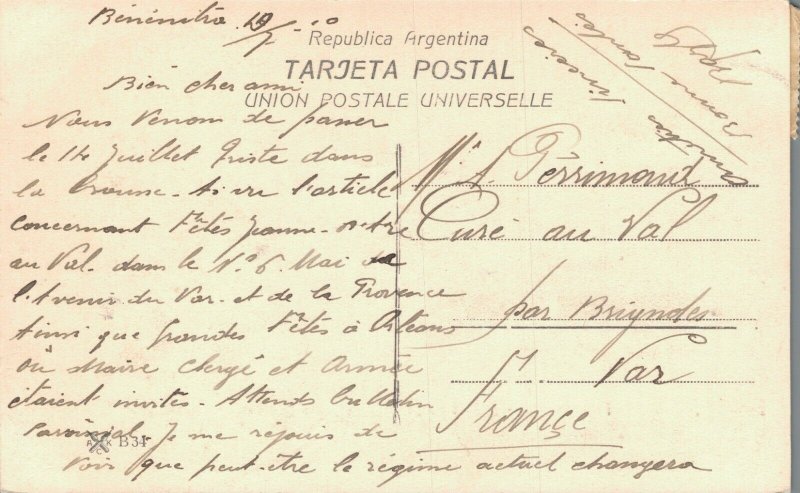 Republica Argentina
TARJETA POSTAL
UNION POSTALE UNIVERSELLE
Bien cher ami
Nous Venom de passer
le 14 Juillet triste dans
la Ai vu l'article
Concernant Fêtes Jeanne
au Val. dans le N° 6. Mai de
l'Avenir du Var. et de la Provence
Ainsi que grandes Fêtes à Orléans
où Maire Clergé et Armée
étaient invités. Attends bulletin
Paroissial. Je me réjouis de
Voir que peut-être le régime actuel changera
Mr A. Perrimond
Curé au Val
par Brignoles
Var
France
B34